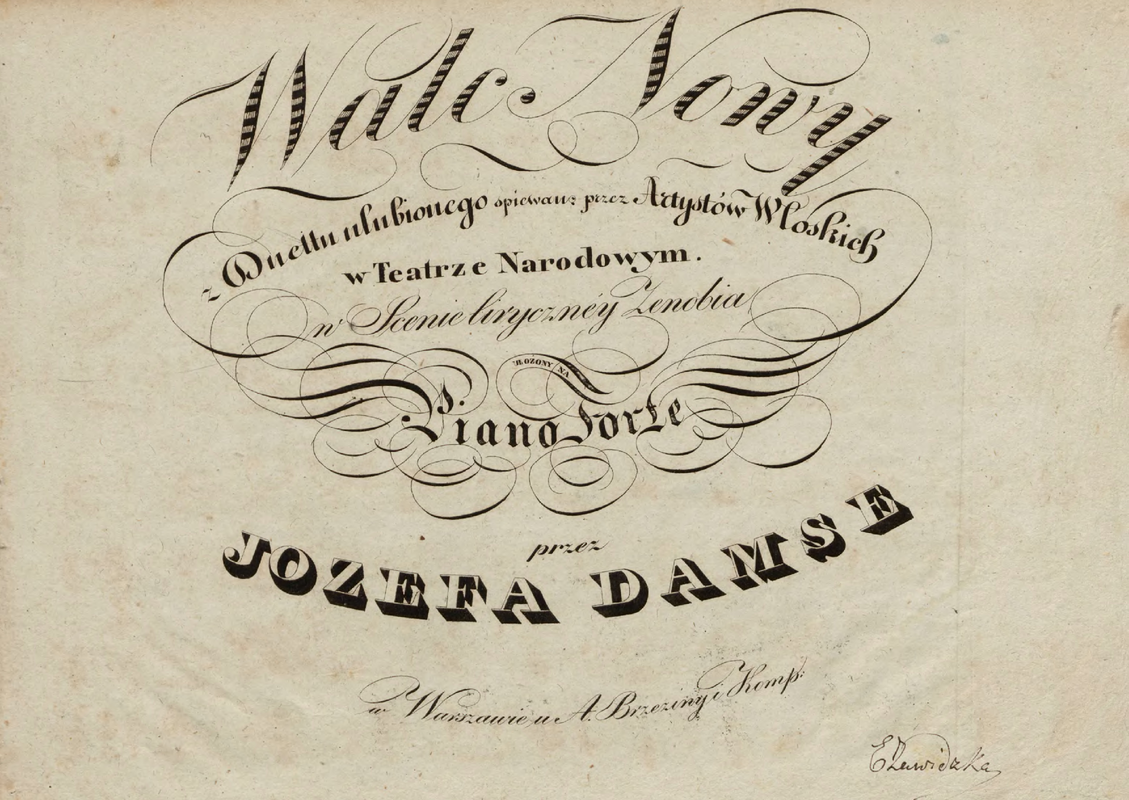 Walc Nowy
z Duettu ulubionego spiewan: przez Artystów Wloskich
w Teatrze Narodowym.
w Scenie liryczney Zenobia
UŁOZONY NA
Piano Forte
przez
JOZEFA DAMSE
w Warszawie u A. Brzeziny i Komp: